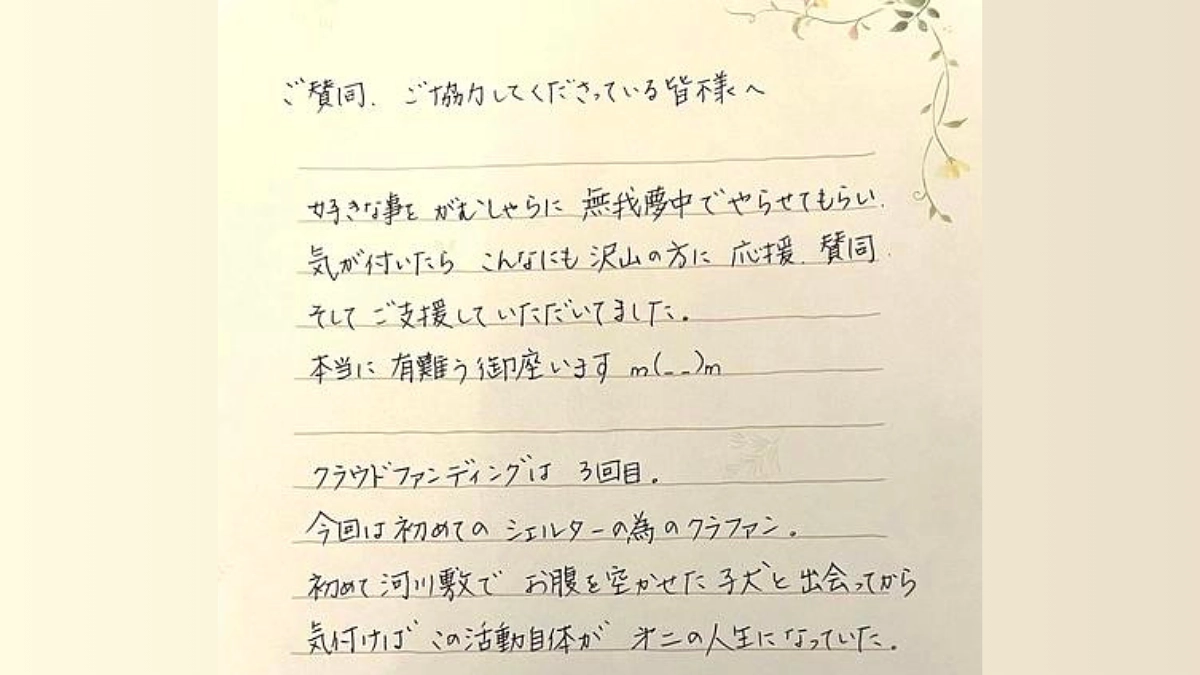 ご賛同、ご協力してくださっている皆様へ
好きな事を がむしゃらに 無我夢中でやらせてもらい、
気が付いたら こんなにも 沢山の方に 応援、賛同、
そして ご支援していただいてました。
本当に 有難う御座います m(_ _)m
クラウドファンディングは 3回目。
今回は初めての シェルターの為のクラファン。
初めて河川敷で お腹を空かせた子犬と出会ってから
気付けば この活動自体が 第二の人生になっていた。